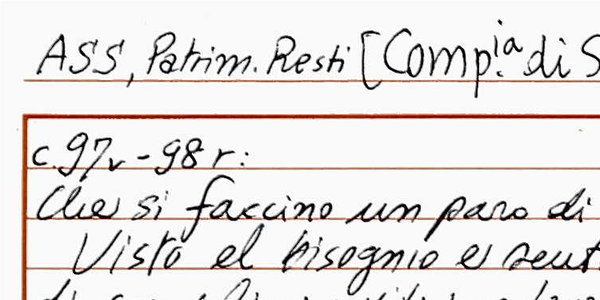 ASS, Patrim. Resti [Comp.ia di S
c. 97v - 98 r:
Che si faccino un paro di
Visto el bisognio e sent
di